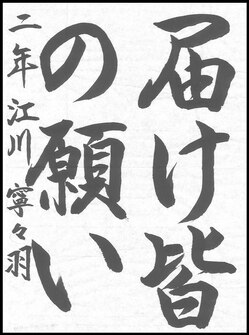 届け皆
の願い
二年江川寧々羽